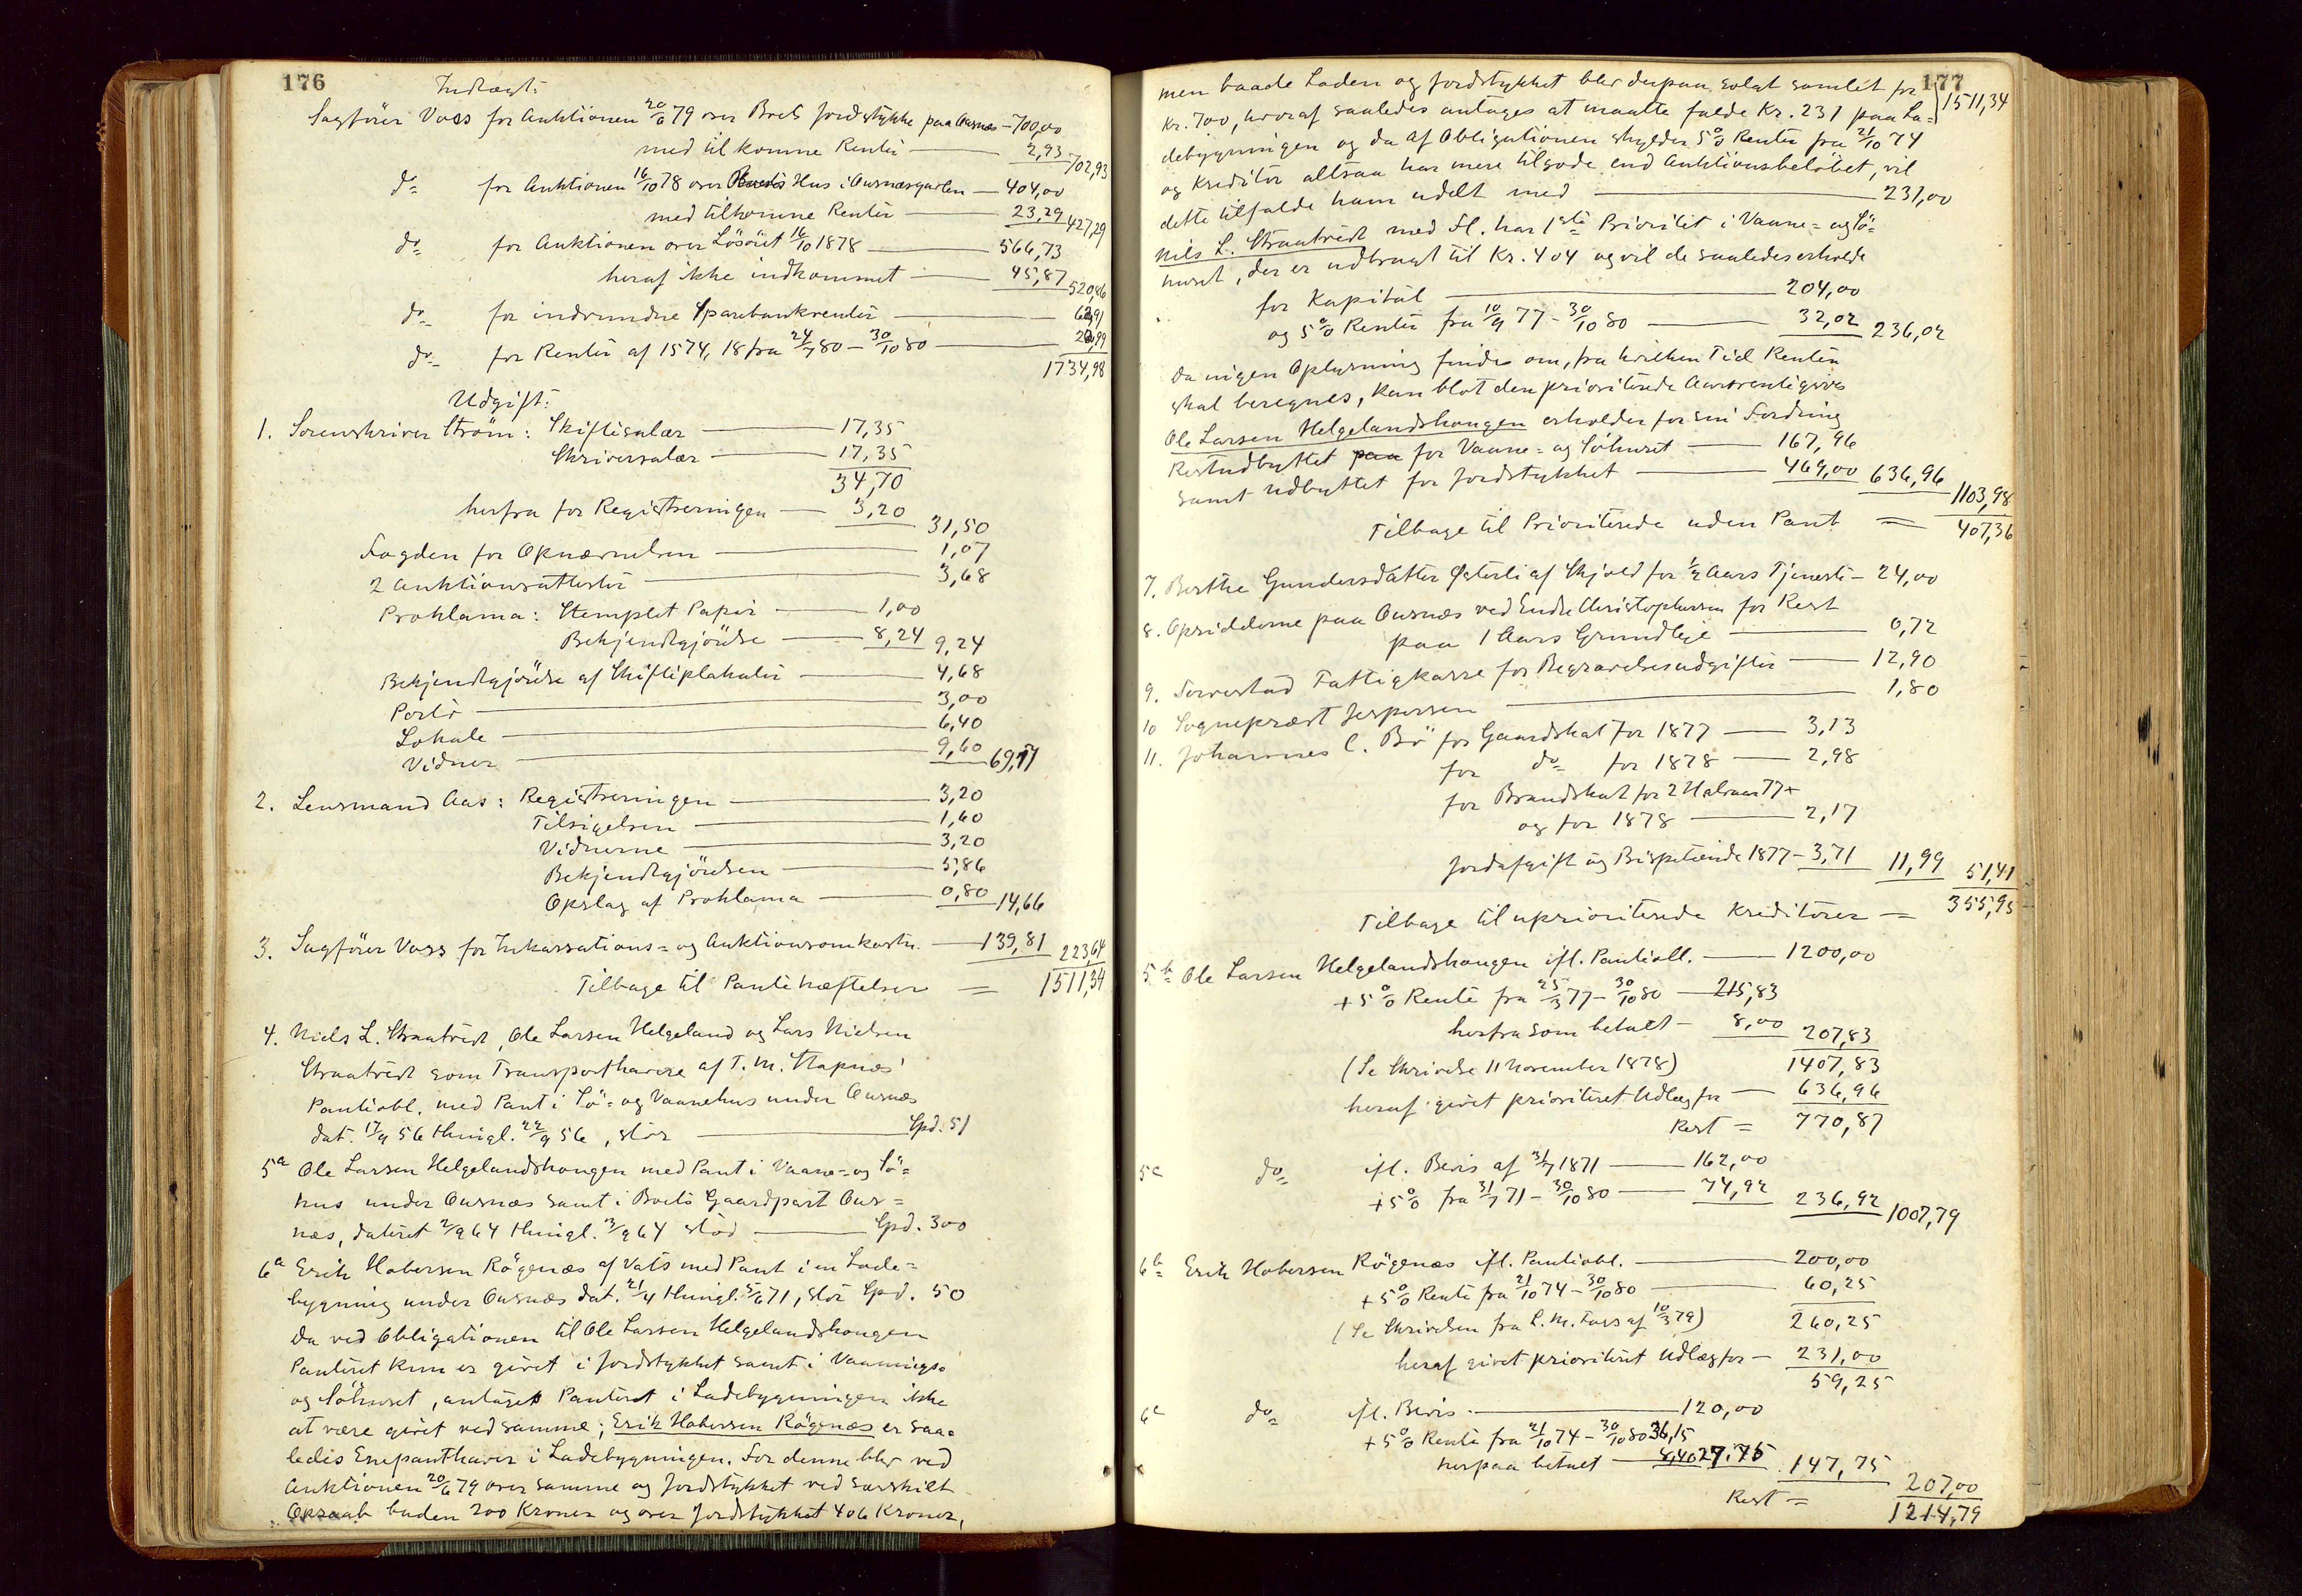 176
Indtægt:
Sagfører Voss for Auktionen 20/6 79 over Boets Jordstykke paa Ousnæs — 700,00
med tilkomne Renter — 2,93 702,93
do for Auktionen 16/10 78 over Boets Hus i Ousnæsgarden — 404,00
med tilkomne Renter — 23,29 427,29
do for Auktionen over Løsøret 16/10 1878 — 566,73
heraf ikke indkommet — 45,87 520,86
do for indvundne Sparebankrenter — 62,91
do for Renter af 1574,18 fra 24/7 80 – 30/10 80 — 20,99
1734,98
Udgift:
1. Sorenskriver Strøm: Skiftesalær — 17,35
Skriversalær — 17,35
34,70
herfra for Registreringen — 3,20 31,50
Fogden for Opnævnelsen — 1,07
2 Auktionsattester — 3,68
Proklama: Stemplet Papir — 1,00
Bekjendtgjørelse — 8,24 9,24
Bekjendtgjørelse af Skifteplakater — 4,68
Porto — 3,00
Lokale — 6,40
Vidner — 9,60 69,17
2. Lensmand Aas: Registreringen — 3,20
Tilsigelsen — 1,60
Vidnerne — 3,20
Bekjendtgjørelsen — 5,86
Opslag af Proklama — 0,80 14,66
3. Sagfører Voss for Inkassations- og Auktionsomkostn. — 139,81 223,64
Tilbage til Pantehæftelser = 1511,34
4. Niels L. Straatveit, Ole Larsen Helgeland og Lars Nielsen
Straatveit som Transporthavere af T. M. Stapnæs'
Panteobl. med Pant i Sø- og Vaanehus under Ousnæs
dat. 17/9 56 thingl. 22/9 56, stor — Spd. 51
5a Ole Larsen Helgelandshaugen med Pant i Vaane- og Sø-
hus under Ousnæs samt i Boets Gaardpart Ous-
næs, dateret 2/9 64 thingl. 3/9 64 stod — Spd. 300
6a Erik Halvorsen Røgenæs af Vats med Pant i en Lade-
bygning under Ousnæs dat. 21/4 thingl. 5/6 71, stor Spd. 50
Da ved Obligationen til Ole Larsen Helgelandshaugen
Panteret kun er givet i Jordstykket samt i Vaanings-
og Søhuset, antages Panteret i Ladebygningen ikke
at være givet ved samme; Erik Halvorsen Røgenæs er saa-
ledes Enepanthaver i Ladebygningen. For denne blev ved
Auktionen 20/6 79 over samme og Jordstykket ved særskilt
Opraab buden 200 Kroner og over Jordstykket 406 Kroner,
177
men baade Laden og Jordstykket blev derpaa solgt samlet for 1511,34
Kr. 700, hvoraf saaledes antages at maatte falde Kr. 231 paa La-
debygningen og da af Obligationen skyldes 5% Renter fra 21/10 74
og Kreditor altsaa har mere tilgode end Auktionsbeløbet, vil
dette tilfalde ham udelt med — 231,00
Nils L. Straatveit med Fl. har 1ste Prioritet i Vaane- og Sø-
huset, der er udbragt til Kr. 404 og vil de saaledes erholde
for Kapital — 204,00
og 5% Renter fra 10/9 77 – 30/10 80 — 32,02 236,02
Da ingen Oplysning findes om, fra hvilken Tid Renten
skal beregnes, kan blot den prioriterede Aarsrente gives
Ole Larsen Helgelandshaugen erholder for sin Fordring
Restudbyttet paa for Vaane- og Søhuset — 167,96
samt Udbyttet for Jordstykket — 469,00 636,96 1103,98
Tilbage til Prioriterede uden Pant = 407,36
7. Berthe Gundersdatter Østerli af Skjold for 1/2 Aars Tjeneste — 24,00
8. Opsidderne paa Ousnæs ved Endre Christophersen for Rest
paa 1 Aars Grundleje — 0,72
9. Torvestad Fattigkasse for Begravelsesudgifter — 12,90
10 Sogneprest Jespersen — 1,80
11. Johannes C. Bø for Gaardskat for 1877 — 3,13
for do for 1878 — 2,98
for Brandskat for 2 Halvaar 77
og for 1878 — 2,17
Jordafgift og Bispetiende 1877 — 3,71 11,99 51,41
Tilbage til uprioriterede Kreditorer = 355,95
5b Ole Larsen Helgelandshaugen ifl. Panteobl. — 1200,00
+ 5% Rente fra 25/3 77 – 30/10 80 — 215,83
herfra som betalt — 8,00 207,83
(Se Skrivelse 11 November 1878) 1407,83
heraf givet prioriteret Udlæg for — 636,96
Rest = 770,87
5c do ifl. Bevis af 31/7 1871 — 162,00
+ 5% fra 31/7 71 – 30/10 80 — 74,92 236,92 1007,79
6b Erik Halvorsen Røgenæs ifl. Panteobl. — 200,00
+ 5% Rente fra 21/10 74 – 30/10 80 — 60,25
(Se Skrivelsen fra L. M. af 10/3 79) 260,25
heraf givet prioriteret Udlæg for — 231,00
59,25
6c do ifl. Bevis — 120,00
+ 5% Rente fra 21/10 74 – 30/10 80 36,15
herpaa betalt — 8,40 27,75 147,75 207,00
Rest = 1214,79